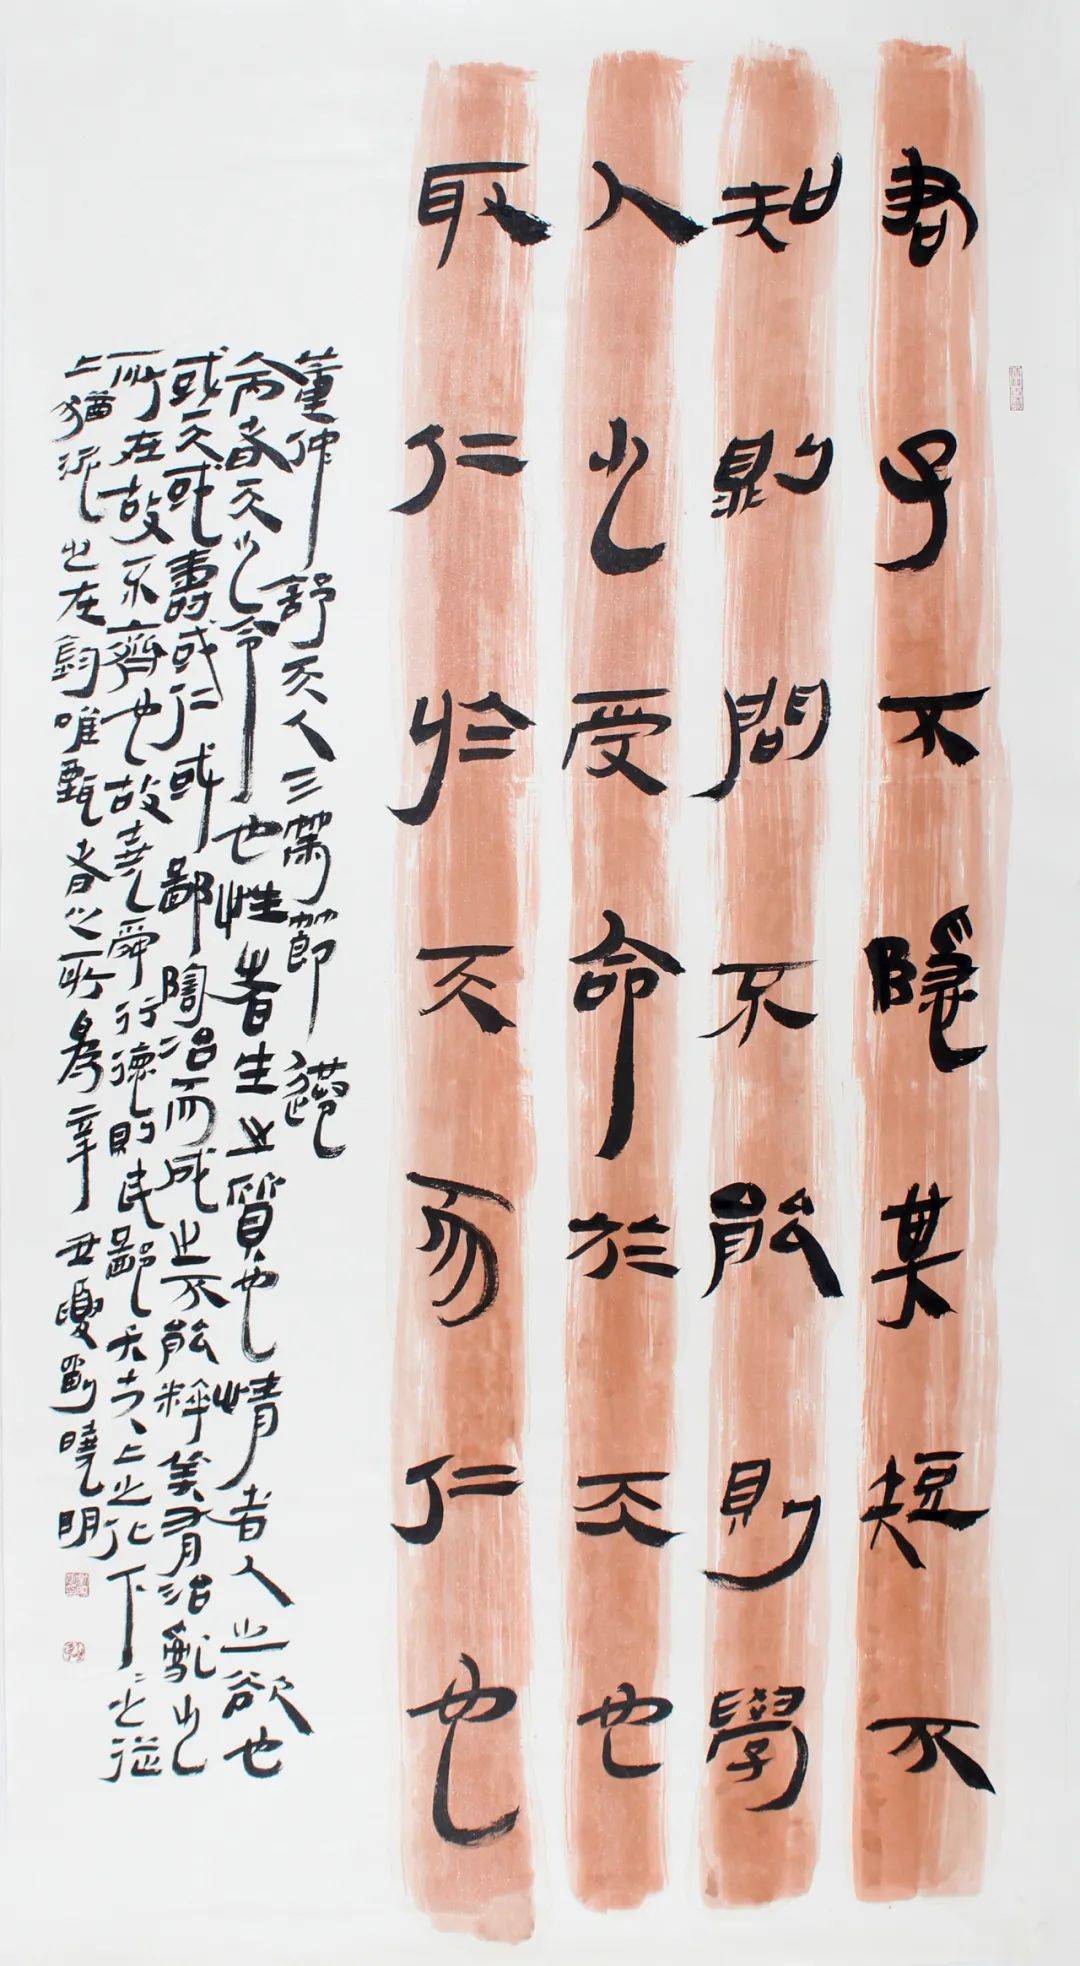 君子不隱其短不
知則問不能則學
人之受命於天也
取仁於天而仁也
董仲舒天人三策節選
命者天之令也性者生之質也情者人之欲也
或夭或壽或仁或鄙陶冶而成之不能粹美有治亂之
所在故不齊也故堯舜行德則民鄙夭夫上之化下〻之從
上猶泥之在鈞唯甄者之所為辛丑夏劉曉明